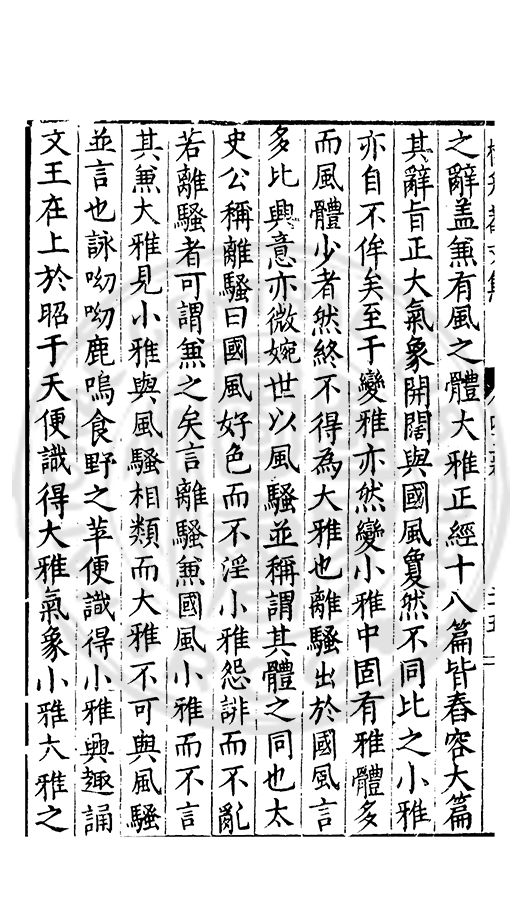 之辭盖兼有風之體大雅正經十八篇皆舂容大篇
其辭旨正大氣象開闊與國風敻然不同比之小雅
亦自不侔矣至于變雅亦然變小雅中固有雅體多
而風體少者然終不得為大雅也離騷出於國風言
多比興意亦微婉世以風騷並稱謂其體之同也太
史公稱離騷曰國風好色而不淫小雅怨誹而不亂
若離騷者可謂兼之矣言離騷兼國風小雅而不言
其兼大雅見小雅與風騷相類而大雅不可與風騷
並言也詠呦呦鹿鳴食野之苹便識得小雅興趣誦
文王在上於昭于天便識得大雅氣象小雅大雅之